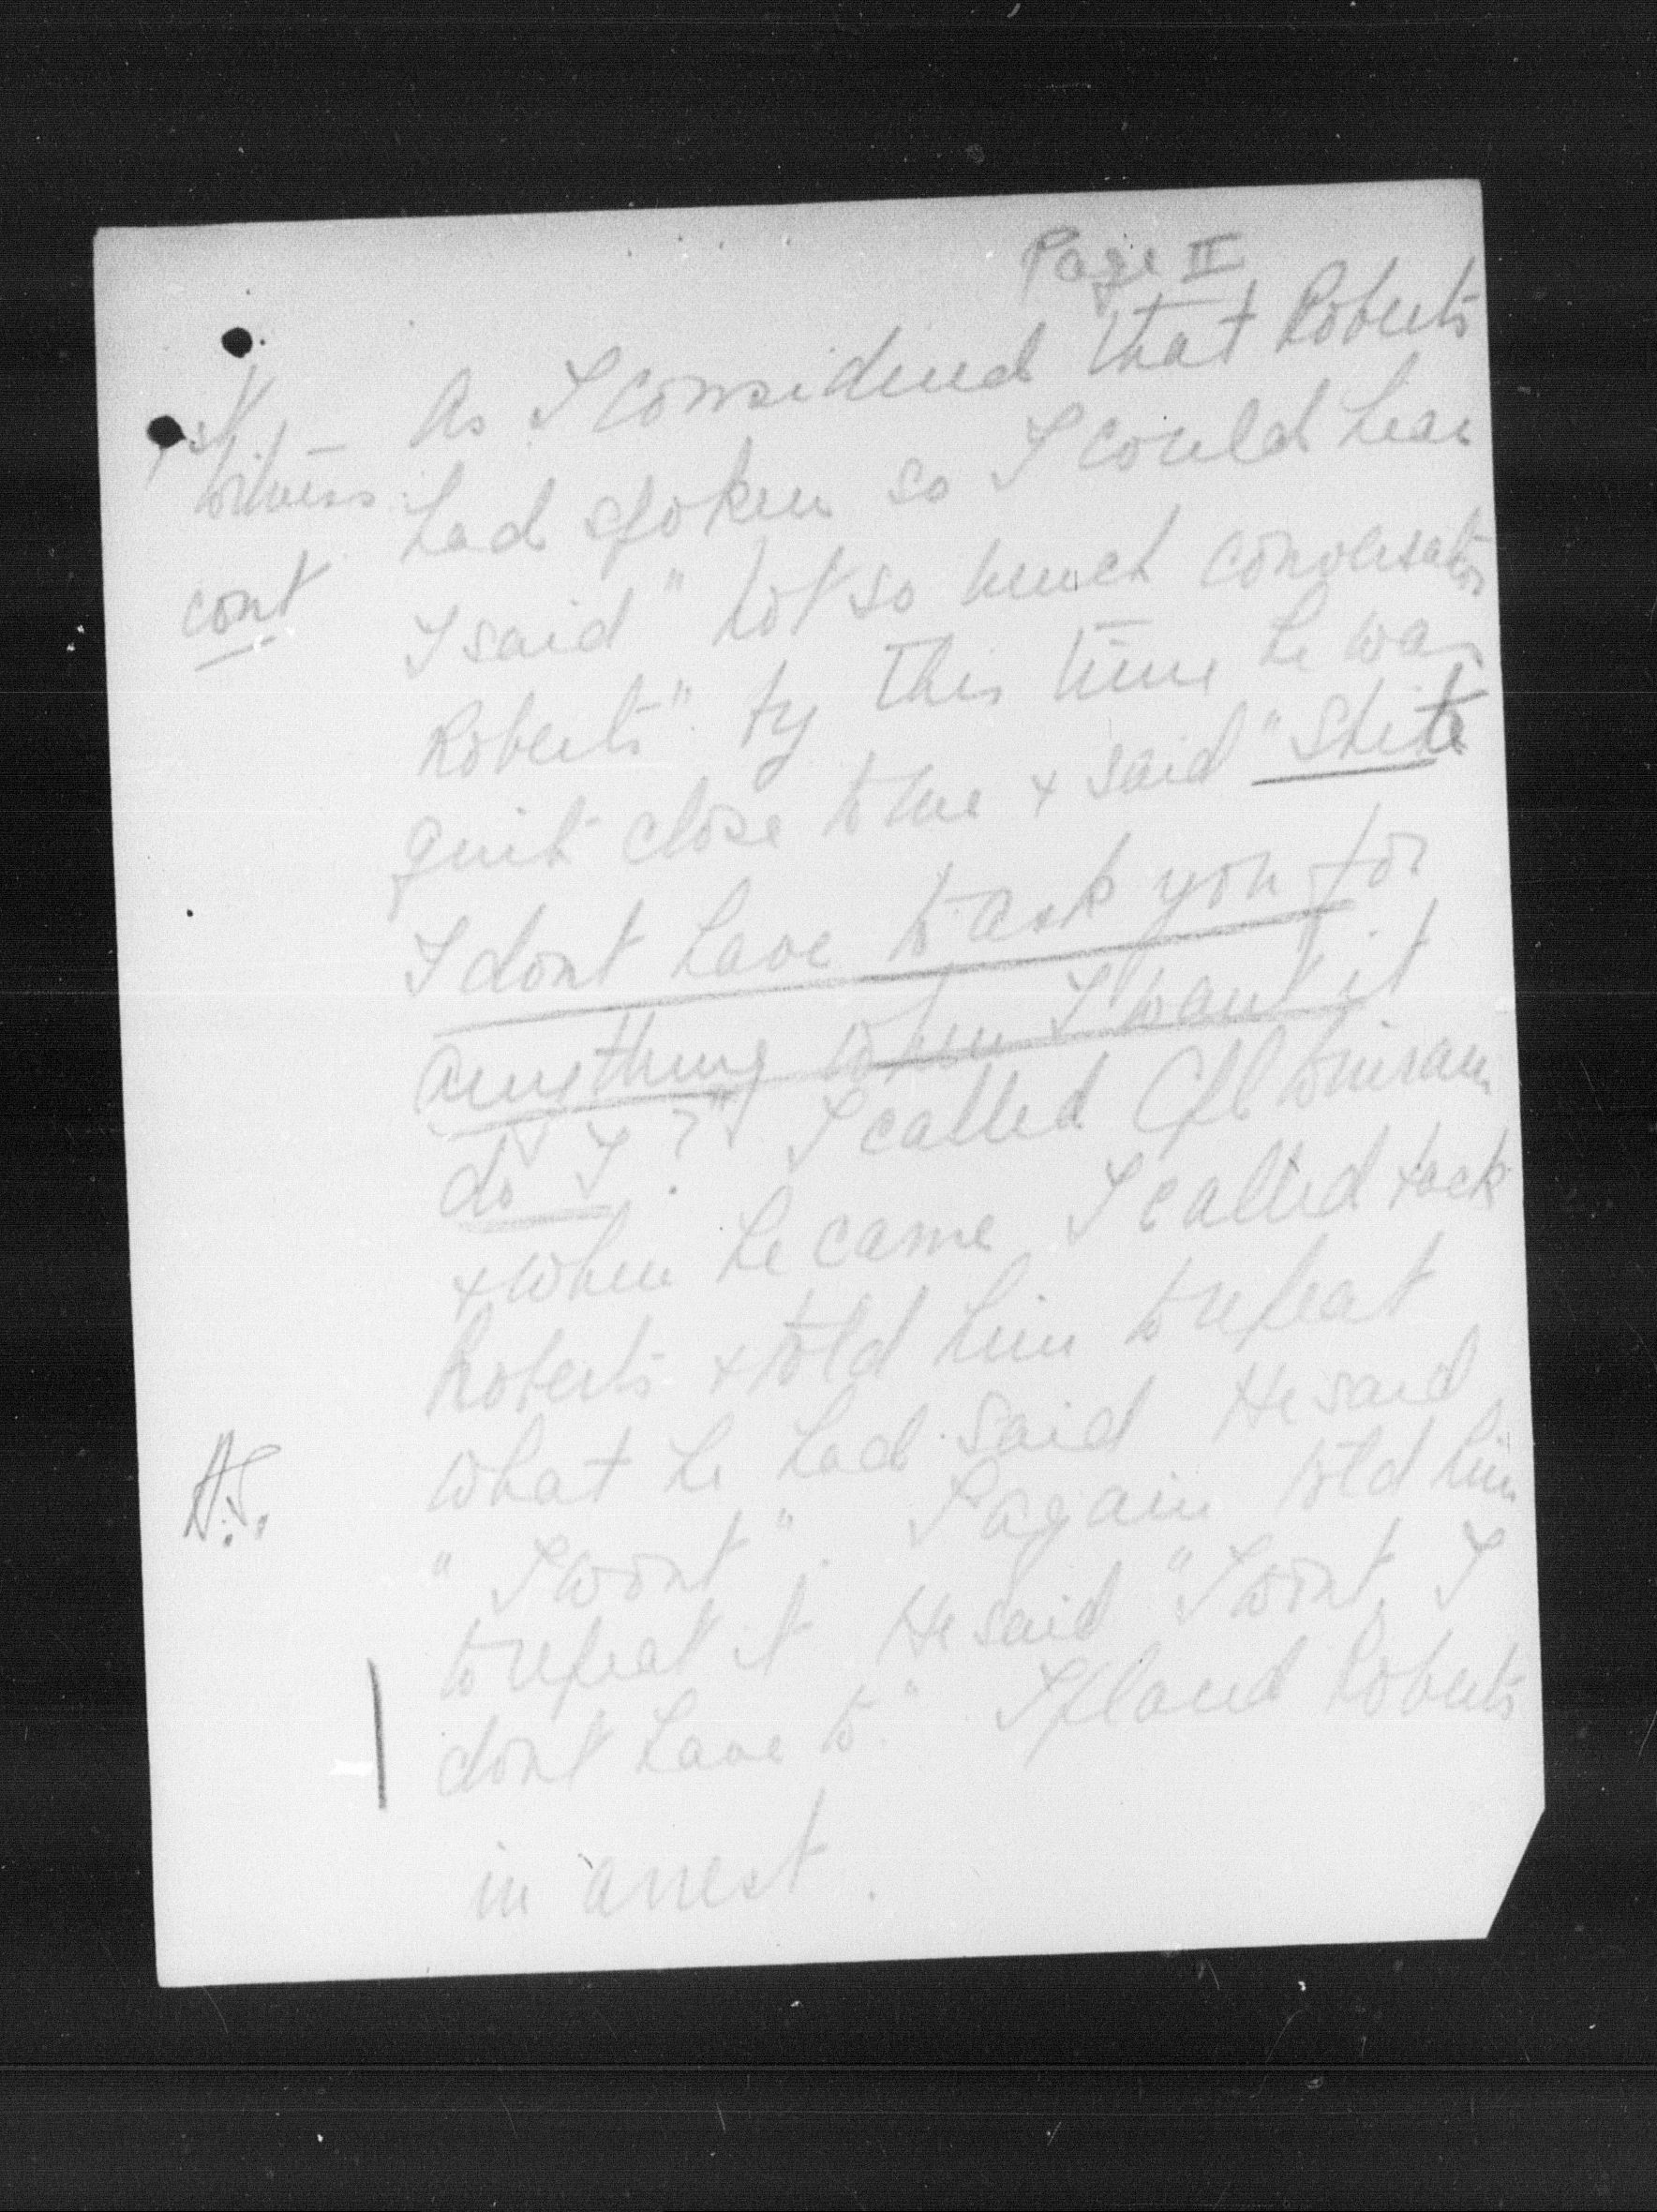 Page II
1st As I considered that Roberts
Witness had spoken so I could hear
cont I said "not so much conversation
Roberts". by this time he was
quite close to me + said "Shite
I dont have to ask you for
anything when I want it
do I?" I called Cpl
+ when he came I called back
Roberts + told him to repeat
what he had said He said
"I wont". I again told him
to repeat it He said "I wont, I
dont have to." I placed Roberts
in arrest.